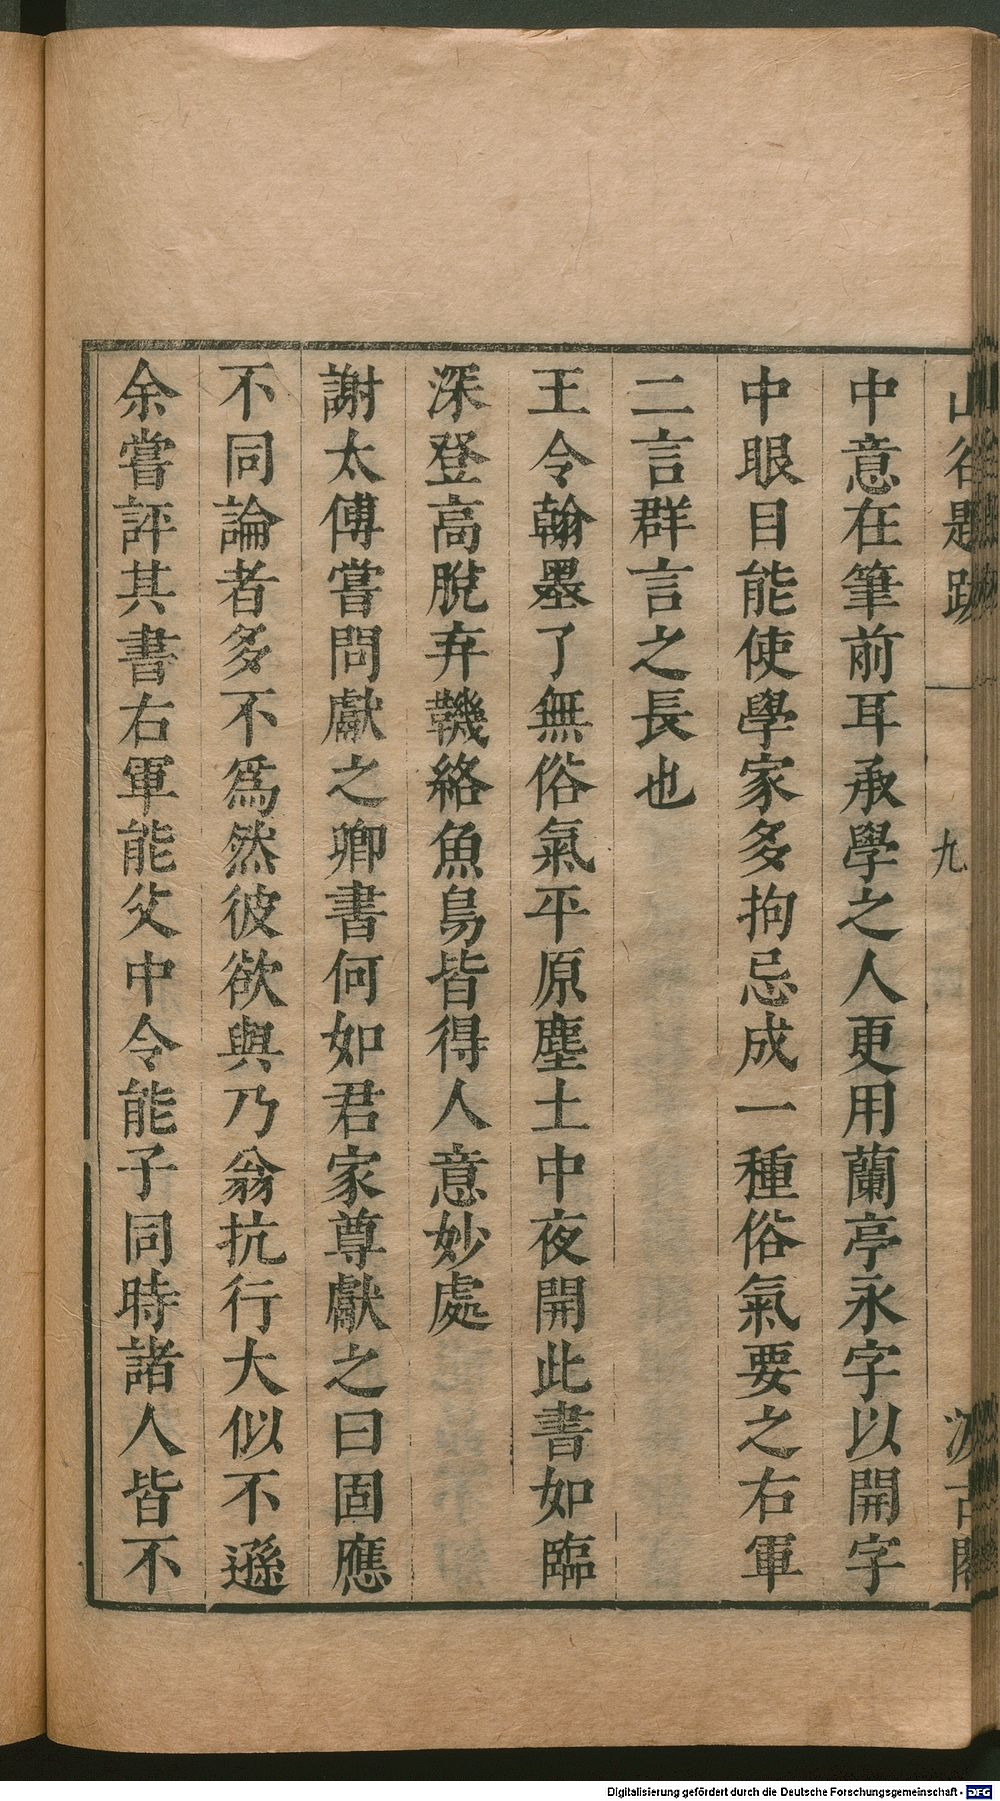 山谷題跋
九
汲古閣
中意在筆前耳承學之人更用蘭亭永字以開字
中眼目能使學家多拘忌成一種俗氣要之右軍
二言群言之長也
王令翰墨了無俗氣平原塵土中夜開此書如臨
深登高脫弃鞿絡魚鳥皆得人意妙處
謝太傅嘗問獻之卿書何如君家尊獻之曰固應
不同論者多不爲然彼欲與乃翁抗行大似不遜
余嘗評其書右軍能父中令能子同時諸人皆不
Digitalisierung gefördert durch die Deutsche Forschungsgemeinschaft - DFG